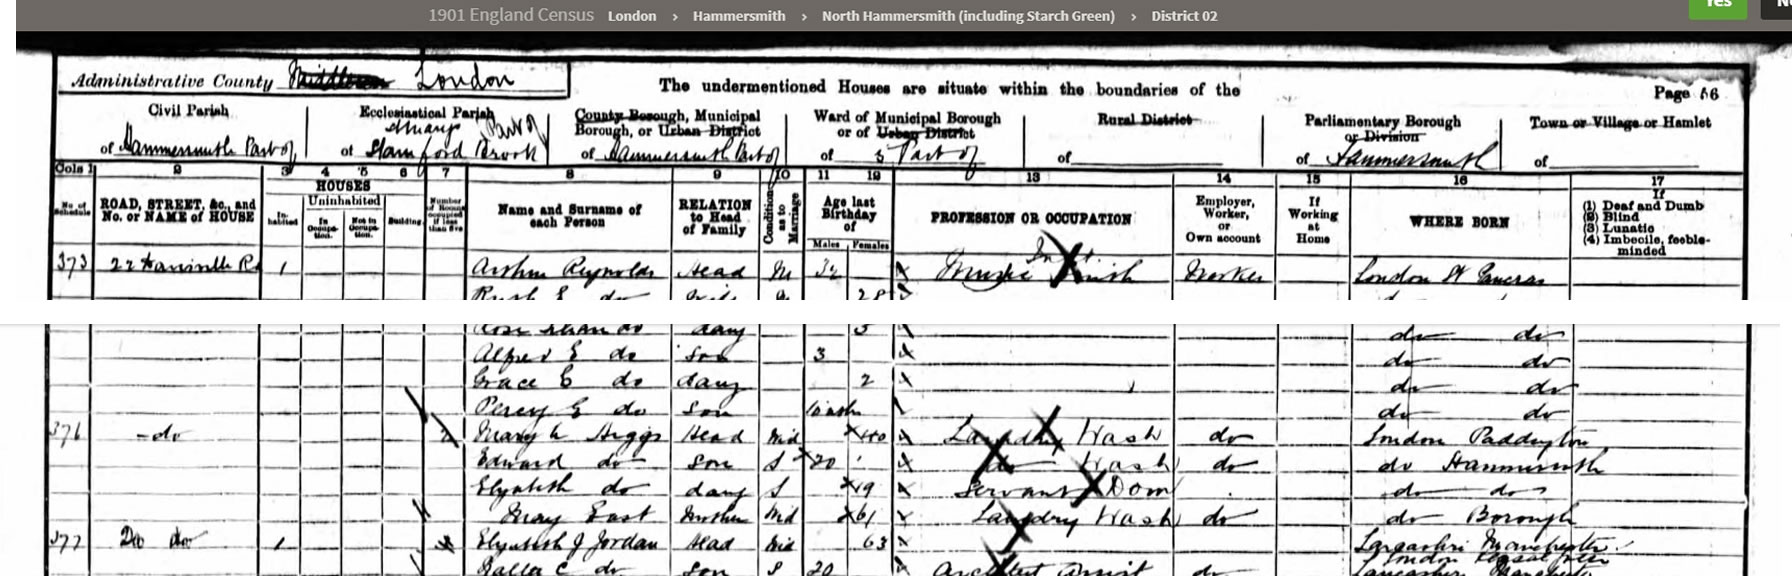 1901 England Census London › Hammersmith › North Hammersmith (including Starch Green) › District 02
Yes
Administrative County London
The undermentioned Houses are situate within the boundaries of the
Page 56
Civil Parish
of Hammersmith Part of
Ecclesiastical Parish
of St Mary Stamford Brook Part of
County Borough, Municipal Borough, or Urban District
of Hammersmith Part of
Ward of Municipal Borough or of Urban District
of 3 Part of
Rural District
of
Parliamentary Borough or Division
of Hammersmith
Town or Village or Hamlet
of
Cols 1 2 3 4 5 6 7 8 9 10 11 12 13 14 15 16 17
No. of Schedule
ROAD, STREET, &c., and No. or NAME of HOUSE
HOUSES
Inhabited
Uninhabited
In Occupation.
Not in Occupation.
Building
Number of Rooms occupied if less than five
Name and Surname of each Person
RELATION to Head of Family
Condition as to Marriage
Age last Birthday of
Males Females
PROFESSION OR OCCUPATION
Employer, Worker, or Own account
If Working at Home
WHERE BORN
If
(1) Deaf and Dumb
(2) Blind
(3) Lunatic
(4) Imbecile, feeble-minded
373 22 Rd 1 Arthur Reynolds Head M 32 Music Worker London St Pancras
do wife 28
daug 5 do do
Alfred E do son 3 do do
Grace E do daug 2 do do
Percy E do son 10 mths do do
376 do 2 Mary A Higgs Head Wid 40 Laundry Wash do London Paddington
Edward do son S 20 do Wash do do Hammersmith
Elizabeth do daug S 19 Servant Dom do do
Mary East Mother Wid 61 Laundry Wash do do Borough
377 Do do 1 Elizabeth J Jordan Head Wid 63 Lancashire Manchester
C do son S 20 Architect do